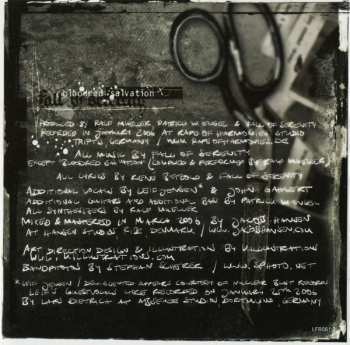 bloodred salvation
Fall of Serenity
PRODUCED BY RALF MUELLER PATRICK W. ENGEL & FALL OF SERENITY
RECORDED IN JANUARY 2006 AT RAPE OF HARMONIES STUDIO
TRIPTIS GERMANY / WWW.RAPEOFHARMONIES.DE
ALL MUSIC BY FALL OF SERENITY
EXCEPT BLOODRED SALVATION (COMPOSED & PERFORMED BY RALF MUELLER)
ALL LYRICS BY RENE BETZOLD & FALL OF SERENITY
ADDITIONAL VOCALS BY LEIF JENSEN* & JOHN GAHLERT
ADDITIONAL GUITARS AND ADDITIONAL BASS BY PATRICK W. ENGEL
ALL SYNTHESIZERS BY RALF MUELLER
MIXED & MASTERED IN MARCH 2006 BY JACOB HANSEN
AT HANSEN STUDIOS RIBE DENMARK / WWW.JACOBHANSEN.COM
ART DIRECTION DESIGN & ILLUSTRATION BY KILLUSTRATIONS
WWW.KILLUSTRATIONS.COM
BANDPHOTOS BY STEPHAN
*LEIF JENSEN / DEW-SCENTED APPEARS COURTESY OF NUCLEAR BLAST RECORDS
LEIFS VOCALS WERE RECORDED ON JANUARY 2006
BY LARS DIETRICH AT STUDIO DORTMUND GERMANY